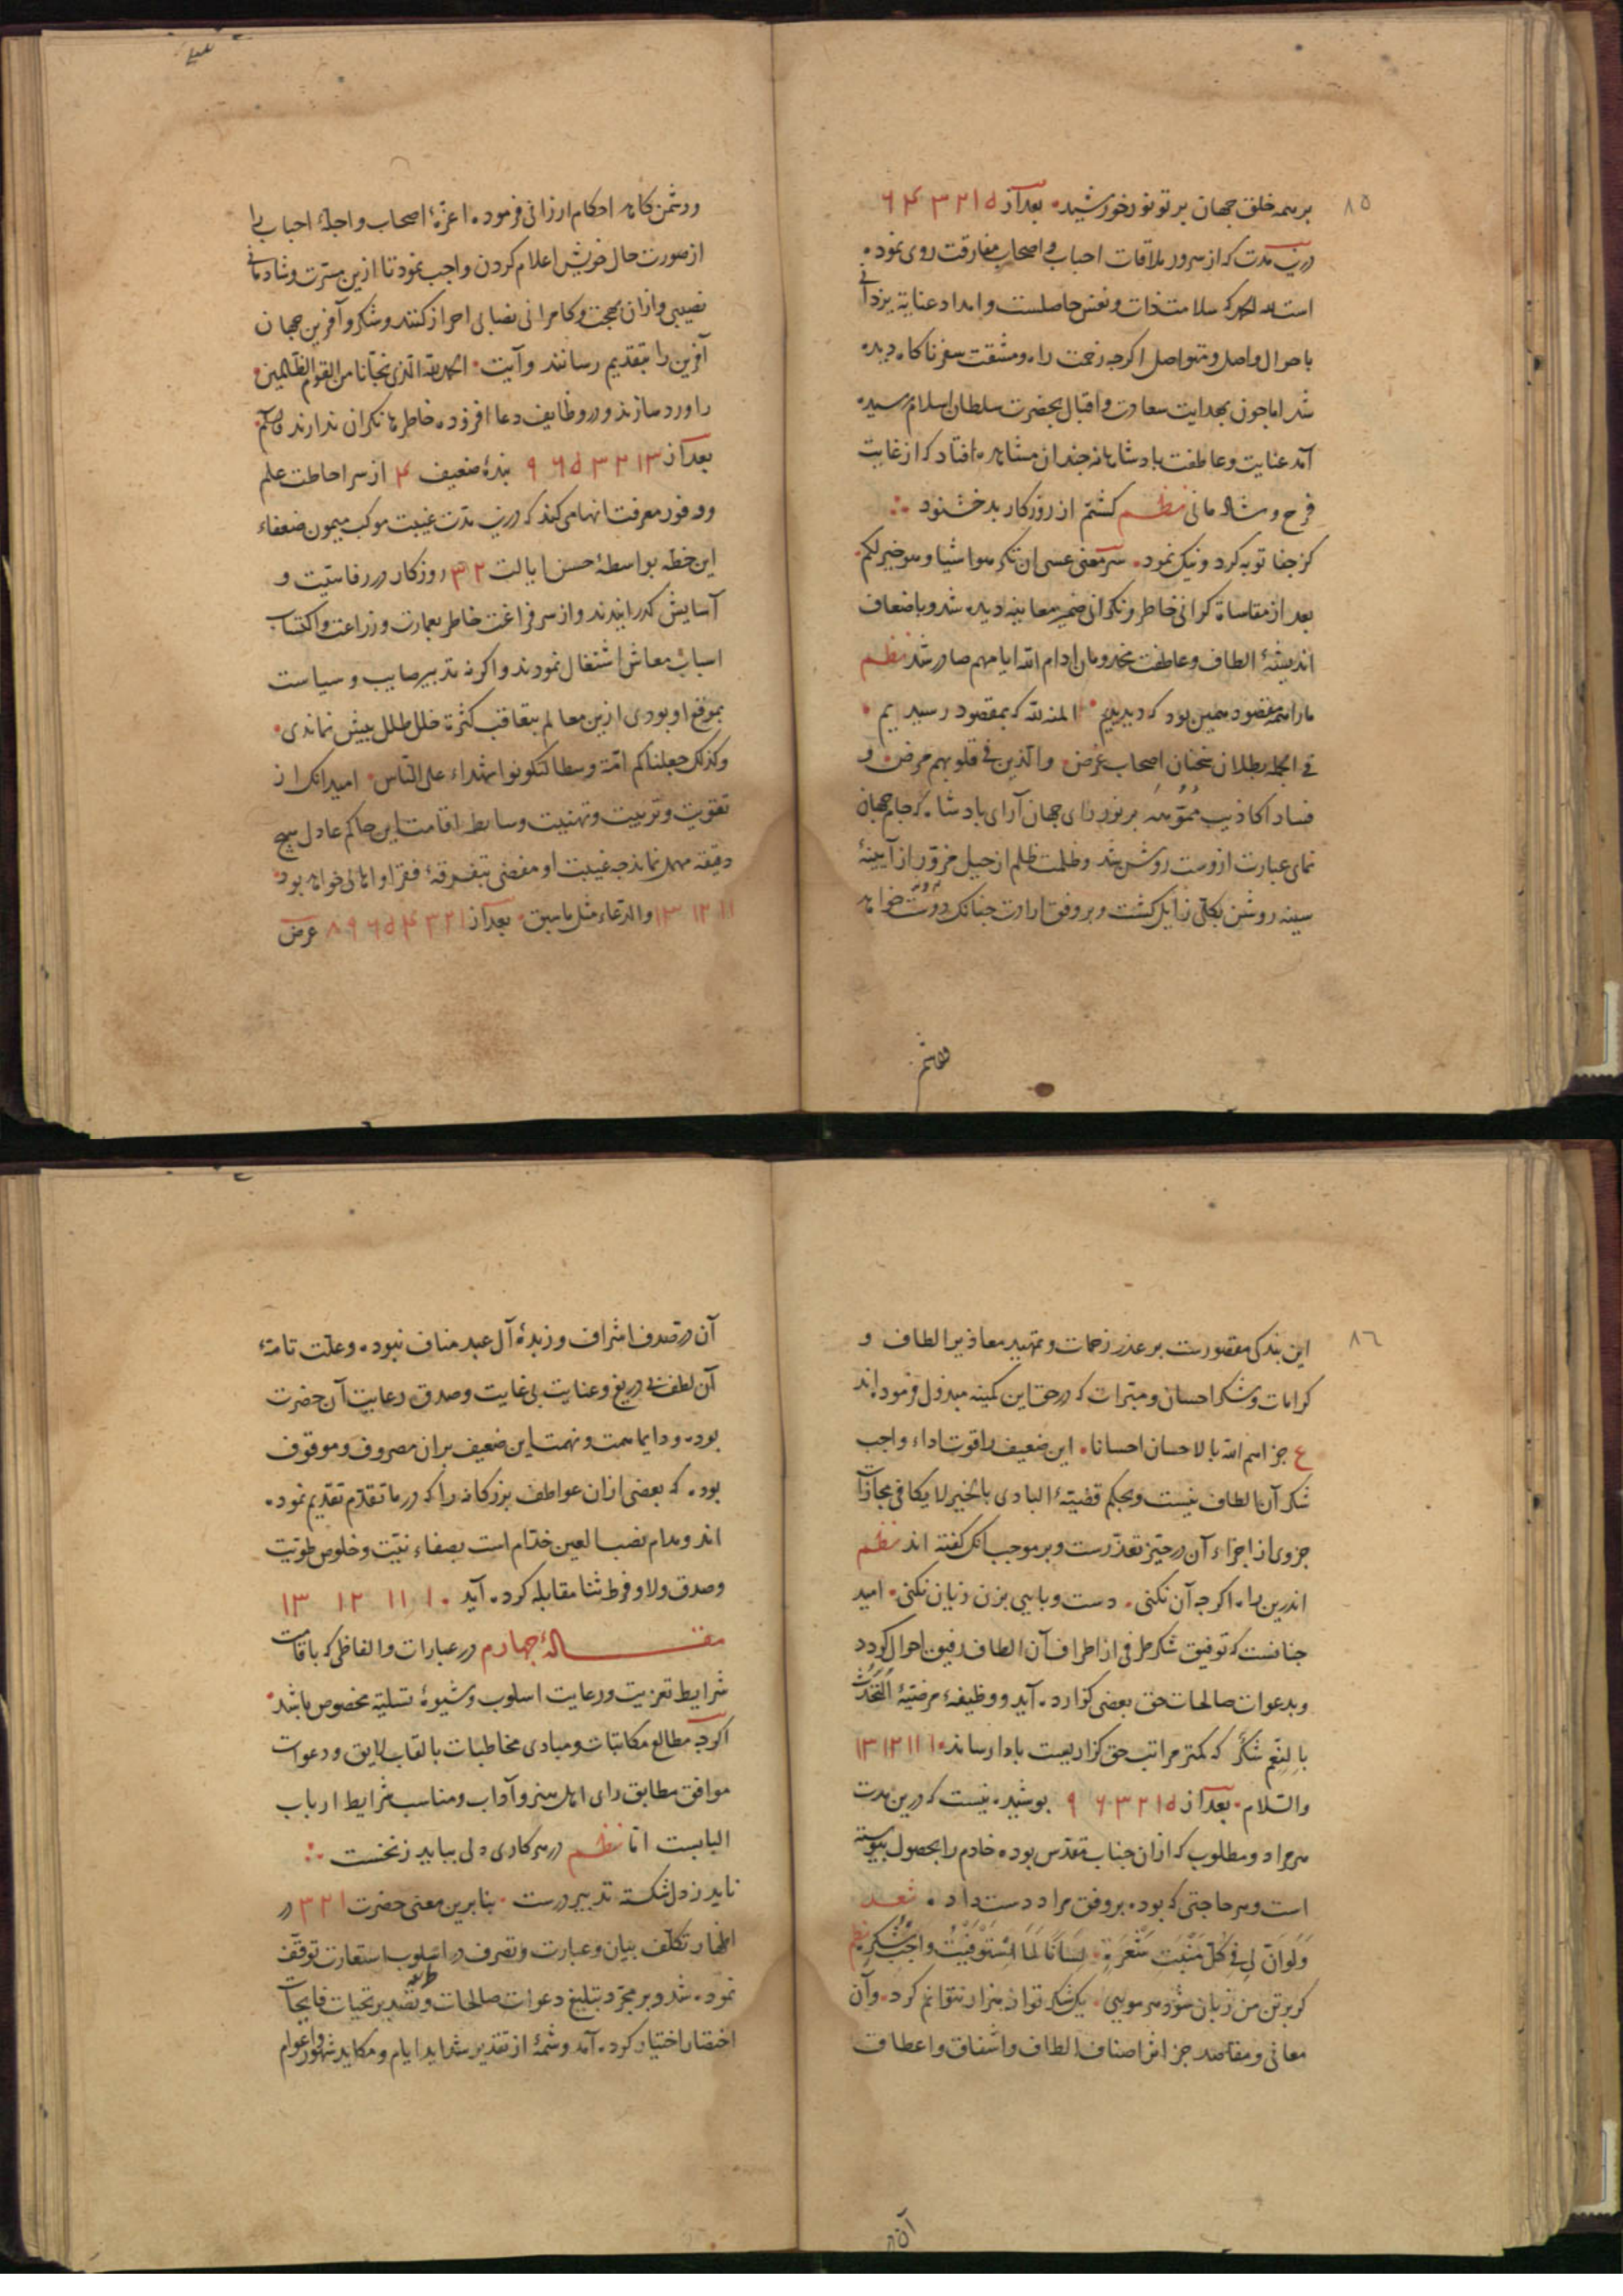 ۸۵
بر همه خلق جهان پرتو نور خورشید. بعد از ۵ ۱ ۲ ۳ ۴ ۶
درین مدت که از سرور ملاقات احباب و اصحاب مفارقت روی نموده
است لله الحمد که سلامت ذات و نفس حاصلست و امداد عنایة یزدانی
باحوال واصل و متواصل اکرچه زحمت راه و مشقت سفر ناکاه دیده
شد اما چون بهدایت سعادت و اقبال بحضرت سلطان اسلام رسیده
آمد عنایت و عاطفت پادشاهانه چندان مشاهده افتاد که از غایت
فرح و شادمانی نظم کشتم از روزکار بد خشنود
کز جفا توبه کرد و نیک نمود. سر معنی عسی ان تکرهوا شیا و هو خیر لکم.
بعد از مقاساة کرانی خاطر و نکرانی ضمیر معاینه دیده شد و باضعاف
اندیشهٔ الطاف و عاطفت مخدومان ادام الله ایامهم صادر شد نظم
ما را همه مقصود همین بود که دیدیم. المنة لله که بمقصود رسیدیم.
فی الجمله بطلان سخنان اصحاب غرض. والذین فی قلوبهم مرض. و
فساد اکاذیب مموّهه بر نور رای جهان آرای پادشاه که جام جهان
نمای عبارت ازوست روشن شد و ظلمت ظلم از حیل مزوّر از آیینهٔ
سینه روشن بکلی زایل کشت و بر وفق ارادت چنانک دوست خواهد
و دشمن کاهد احکام ارزانی فرموده. اعزّهٔ اصحاب و اجلهٔ احباب را
از صورت حال خویش اعلام کردن واجب نمود تا ازین مسرّت و شادمانی
نصیبی و ازان بهجت و کامرانی نصابی احراز کنند و شکر و آفرین جهان
آفرین را بتقدیم رسانند و آیت. الحمد لله الذی نجّانا من القوم الظالمین.
را ورد سازند و در وظایف دعا افزوده خاطرها نکران ندارند
بعد از ۱۳ ۲ ۳ ۵ ۶ ۹ بندهٔ ضعیف ۴ از سر احاطت علم
و وفور معرفت انها می کند که درین مدّت غیبت موکب میمون ضعفاء
این خطه بواسطهٔ حسن ایالت ۲ ۳ روزکار در رفاهیّت و
آسایش کذرانیدند و از سر فراغت خاطر بعمارت و زراعت و اکتساب
اسباب معاش اشتغال نمودند و اکر نه تدبیر صایب و سیاست
بموقع او بودی ازین معالم بتعاقب کثرة خلل طلل بیش نماندی.
وکذلک جعلناکم امّة وسطا لتکونوا شهداء علی النّاس. امید انک از
تقویت و تربیت و تهنیت وسابط اقامت این حاکم عادل هیچ
دقیقه مهمل نماند چه غیبت او مفضی بتفرقهٔ فقرا و اهالی خواهد بود
۱۱ ۱۲ ۱۳ والدعاء مثل ما سبق. بعد از ۱ ۲ ۳ ۴ ۵ ۶ ۹ ۸ عرض
۸۶
این بندکی مقصورست بر عذر زحمات و تمهید معاذیر الطاف و
کرامات و شکر احسان و مبرّات که در حق این کمینه مبذول فرموده اند
ع جزاهم الله بالاحسان احسانا. این ضعیف را قوت اداء واجب
شکر آن الطاف نیست و بحکم قضیّهٔ البادی بالخیر لا یکافی مجازات
جزوی از اجزاء آن در حیّز تعذّرست و بر موجب انک کفته اند نظم
اندرین راه اکرچه آن نکنی. دست و پایی بزن زیان نکنی. امید
چنانست که توفیق شکر طرفی از اطراف آن الطاف رفیق احوال کردد
و بدعوات صالحات حق بعضی کزارده آید و وظیفهٔ مرضیّهٔ التحدّث
بالنعم شکر که کمتر مراتب حق کزاریست بادا رساند ۱۰ ۱۱ ۱۲ ۱۳
والسّلام. بعد از ۵ ۱ ۲ ۳ ۶ ۹ پوشیده نیست که درین مدت
هر مراد و مطلوب که ازان جناب مقدّس بوده خادم را بحصول پیوسته
است و هر حاجتی که بوده بر وفق مراد دست داده. شعر
ولو ان لی فی کلّ منبت شعرة. لسانا لما استوفیت واجب شکره. نظم
کر بر تن من زبان شود هر مویی. یک شکر تو از هزار نتوانم کرد. و آن
معانی و مقاصد جز اثر اصناف الطاف و اشفاق و اعطاف
آن
آن در صدف اشراف و زبدهٔ آل عبد مناف نبوده. و علّت تامهٔ
آن لطف بی دریغ و عنایت بی غایت و صدق رعایت آن حضرت
بوده و دایما همت و نهمت این ضعیف بران مصروف و موقوف
بوده. که بعضی ازان عواطف بزرکانه را که در ما تقدّم تقدیم نموده.
اند و مدام نصب العین خدّام است بصفاء نیّت و خلوص طویّت
و صدق ولا و فرط ثنا مقابله کرده آید ۱۰ ۱۱ ۱۲ ۱۳
مقالهٔ چهارم در عبارات و الفاظی که باقامت
شرایط تعزیت و رعایت اسلوب و شیوهٔ تسلیه مخصوص باشد.
اکرچه مطالع مکاتبات و مبادی مخاطبات بالقاب لایق و دعوات
موافق مطابق رای اهل هنر و آداب و مناسب شرایط ارباب
البابست امّا نظم در هر کاری دلی بباید ز نخست
ناید ز دل شکسته تدبیر درست. بنابرین معنی حضرت ۱ ۲ ۳ در
اظهار تکلّف بیان و عبارت و تصرف در اسلوب استعارت توقّف
نموده شد و بر مجرّد تبلیغ دعوات صالحات و تصدیر تحیات فایحات
اختصار اختیار کرده آمد و شمهٔ از تقدیر شداید ایام و مکاید شهور و اعوام